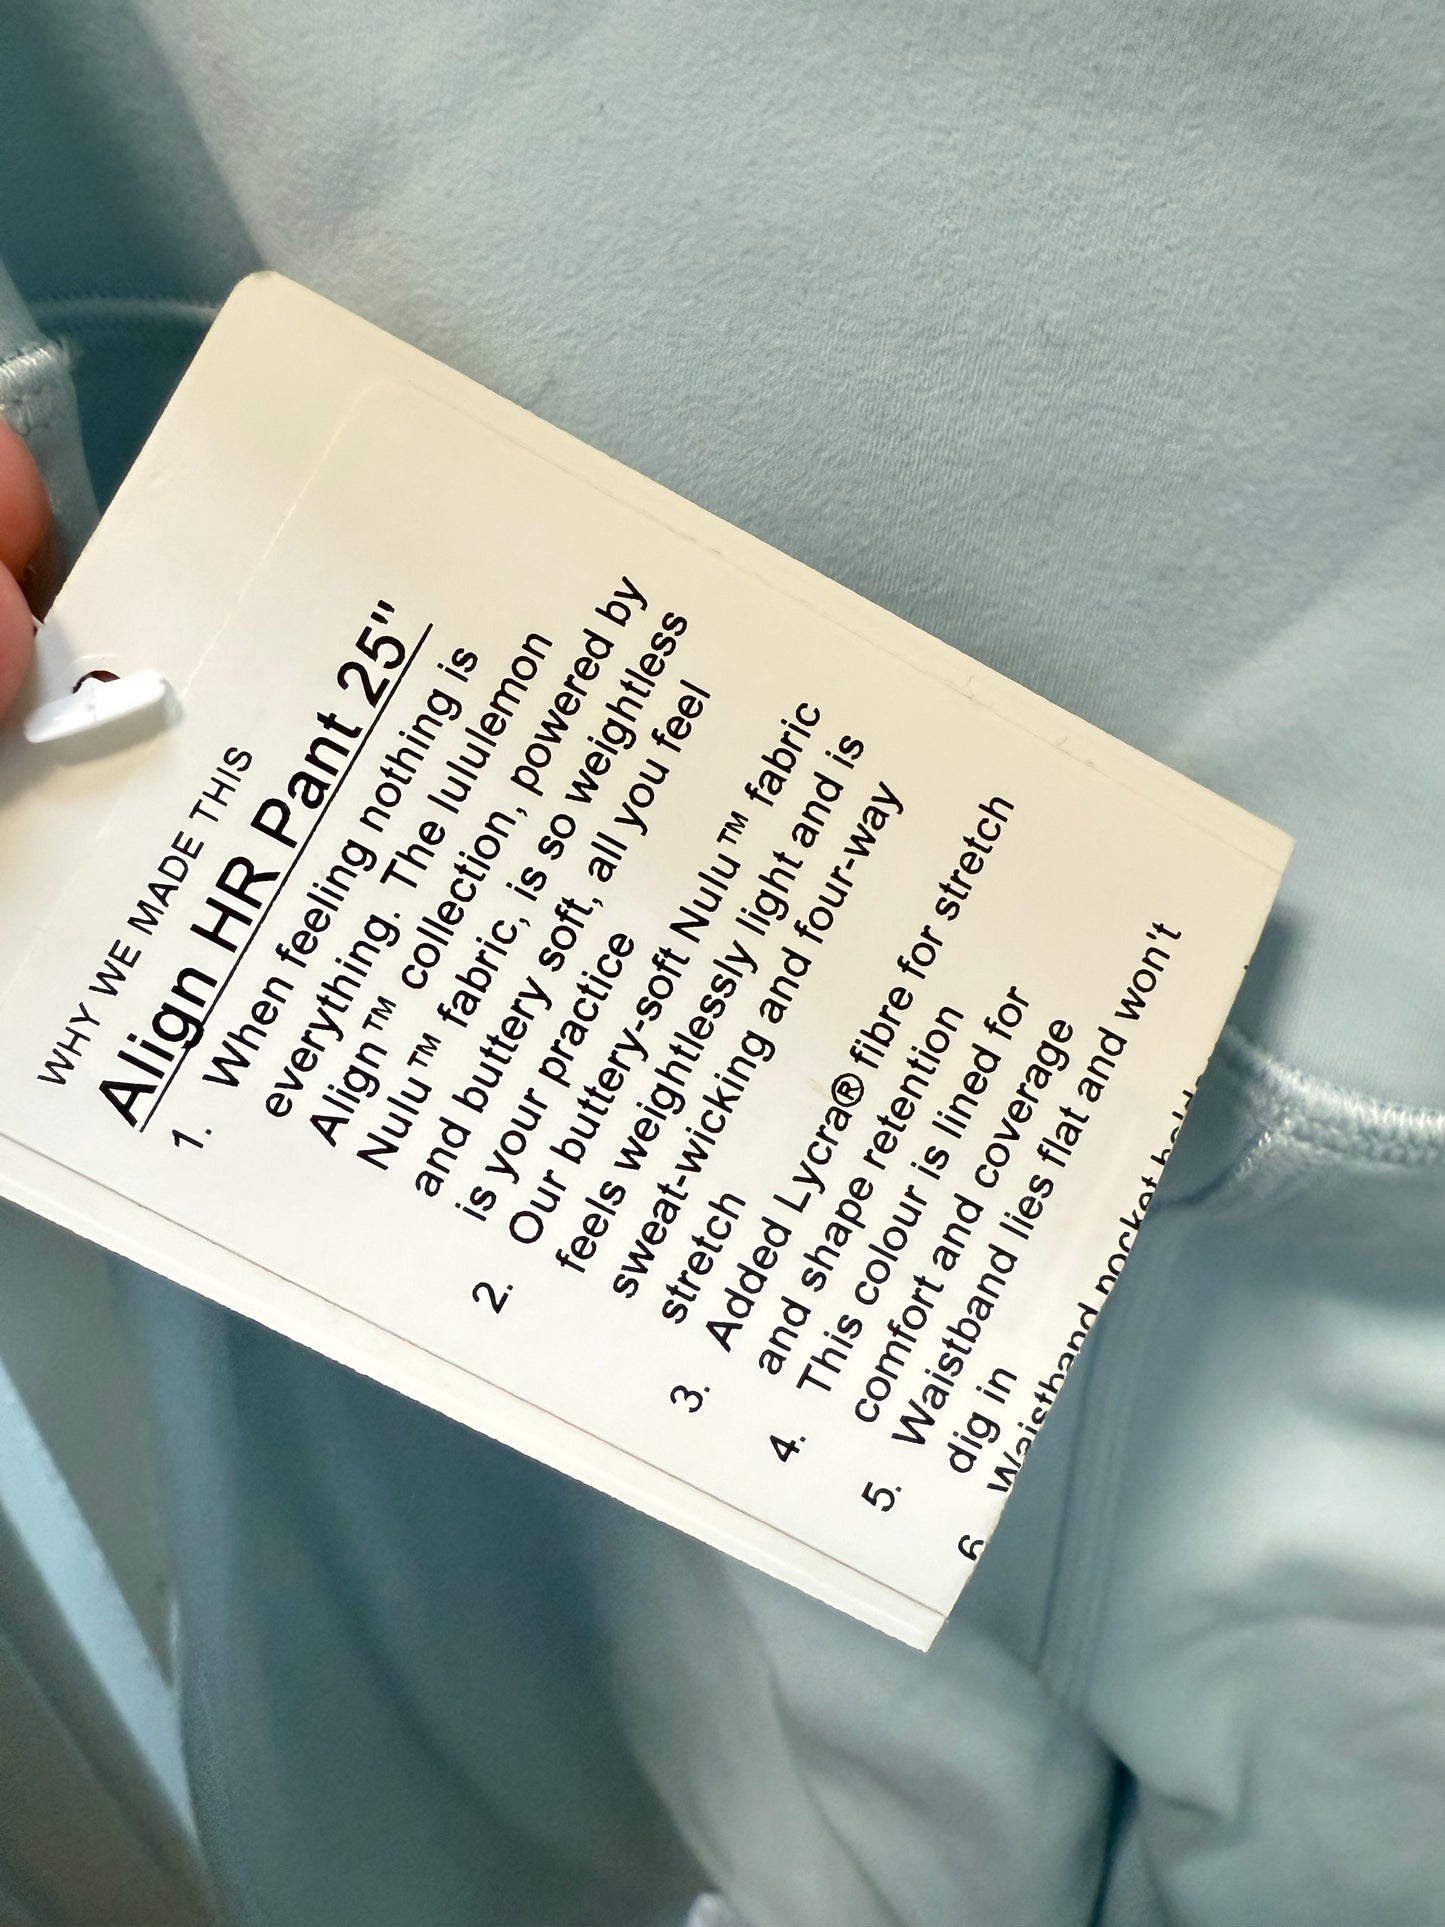 WHY WE MADE THIS
Align HR Pant 25"
1. When feeling nothing is
everything. The lululemon
Align™ collection, powered by
Nulu™ fabric, is so weightless
and buttery soft, all you feel
is your practice
2. Our buttery-soft Nulu™ fabric
feels weightlessly light and is
sweat-wicking and four-way
stretch
3. Added Lycra® fibre for stretch
and shape retention
4. This colour is lined for
comfort and coverage
5. Waistband lies flat and won't
dig in
6. Waistband pocket